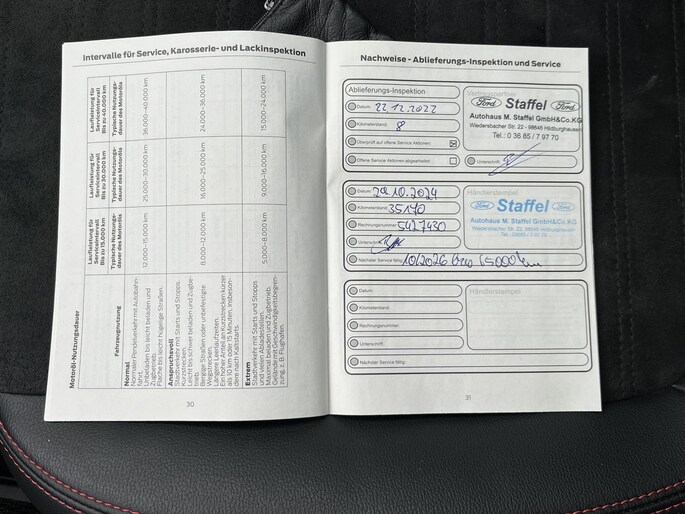 Intervalle für Service, Karosserie- und Lackinspektion
Motoröl-Nutzungsdauer
Fahrzeugnutzung
Laufleistung für Serviceintervall Bis zu 15.000 km
Laufleistung für Serviceintervall Bis zu 30.000 km
Laufleistung für Serviceintervall Bis zu 40.000 km
Typische Nutzungsdauer des Motoröls
Typische Nutzungsdauer des Motoröls
Typische Nutzungsdauer des Motoröls
Normal
Normaler Pendelverkehr mit Autobahnfahrt.
Unbeladen bis leicht beladen und Zugbetrieb.
Flache bis leicht hügelige Straßen.
12.000–15.000 km
25.000–30.000 km
36.000–40.000 km
Anspruchsvoll
Stadtverkehr mit Starts und Stopps.
Kurzstrecken.
Leicht bis schwer beladen und Zugbetrieb.
Bergige Straßen oder unbefestigte Wegstrecken.
Längere Leerlaufzeiten.
Ein hoher Anteil an Kurzstrecken kürzer als 10 km oder 15 Minuten, insbesondere nach Kaltstarts.
8.000–12.000 km
16.000–25.000 km
24.000–36.000 km
Extrem
Stadtverkehr mit Starts und Stopps und vielen Abladestellen.
Maximal beladen und Zugbetrieb.
Gelände mit Geschwindigkeitsbegrenzung, z. B. Flughäfen.
5.000–8.000 km
9.000–16.000 km
15.000–24.000 km
30
Nachweise - Ablieferungs-Inspektion und Service
Ablieferungs-Inspektion
Datum: 22.12.2022
Kilometerstand: 8
Überprüft auf offene Service Aktionen:
Offene Service Aktionen abgearbeitet:
Ford Staffel Ford
Autohaus M. Staffel GmbH&Co.KG
Wiedersbacher Str. 22 - 98646 Hildburghausen
Tel.: 0 36 85 / 7 97 70
Unterschrift:
Datum:
10.2024
Kilometerstand: 35170
Rechnungsnummer: 5427430
Unterschrift:
Nächster Service fällig: 10/2026 15000km
Händlerstempel
Ford Staffel Ford
Autohaus M. Staffel GmbH&Co.KG
Wiedersbacher Str. 22, 98646 Hildburghausen
Datum:
Kilometerstand:
Rechnungsnummer:
Unterschrift:
Nächster Service fällig:
Händlerstempel
31